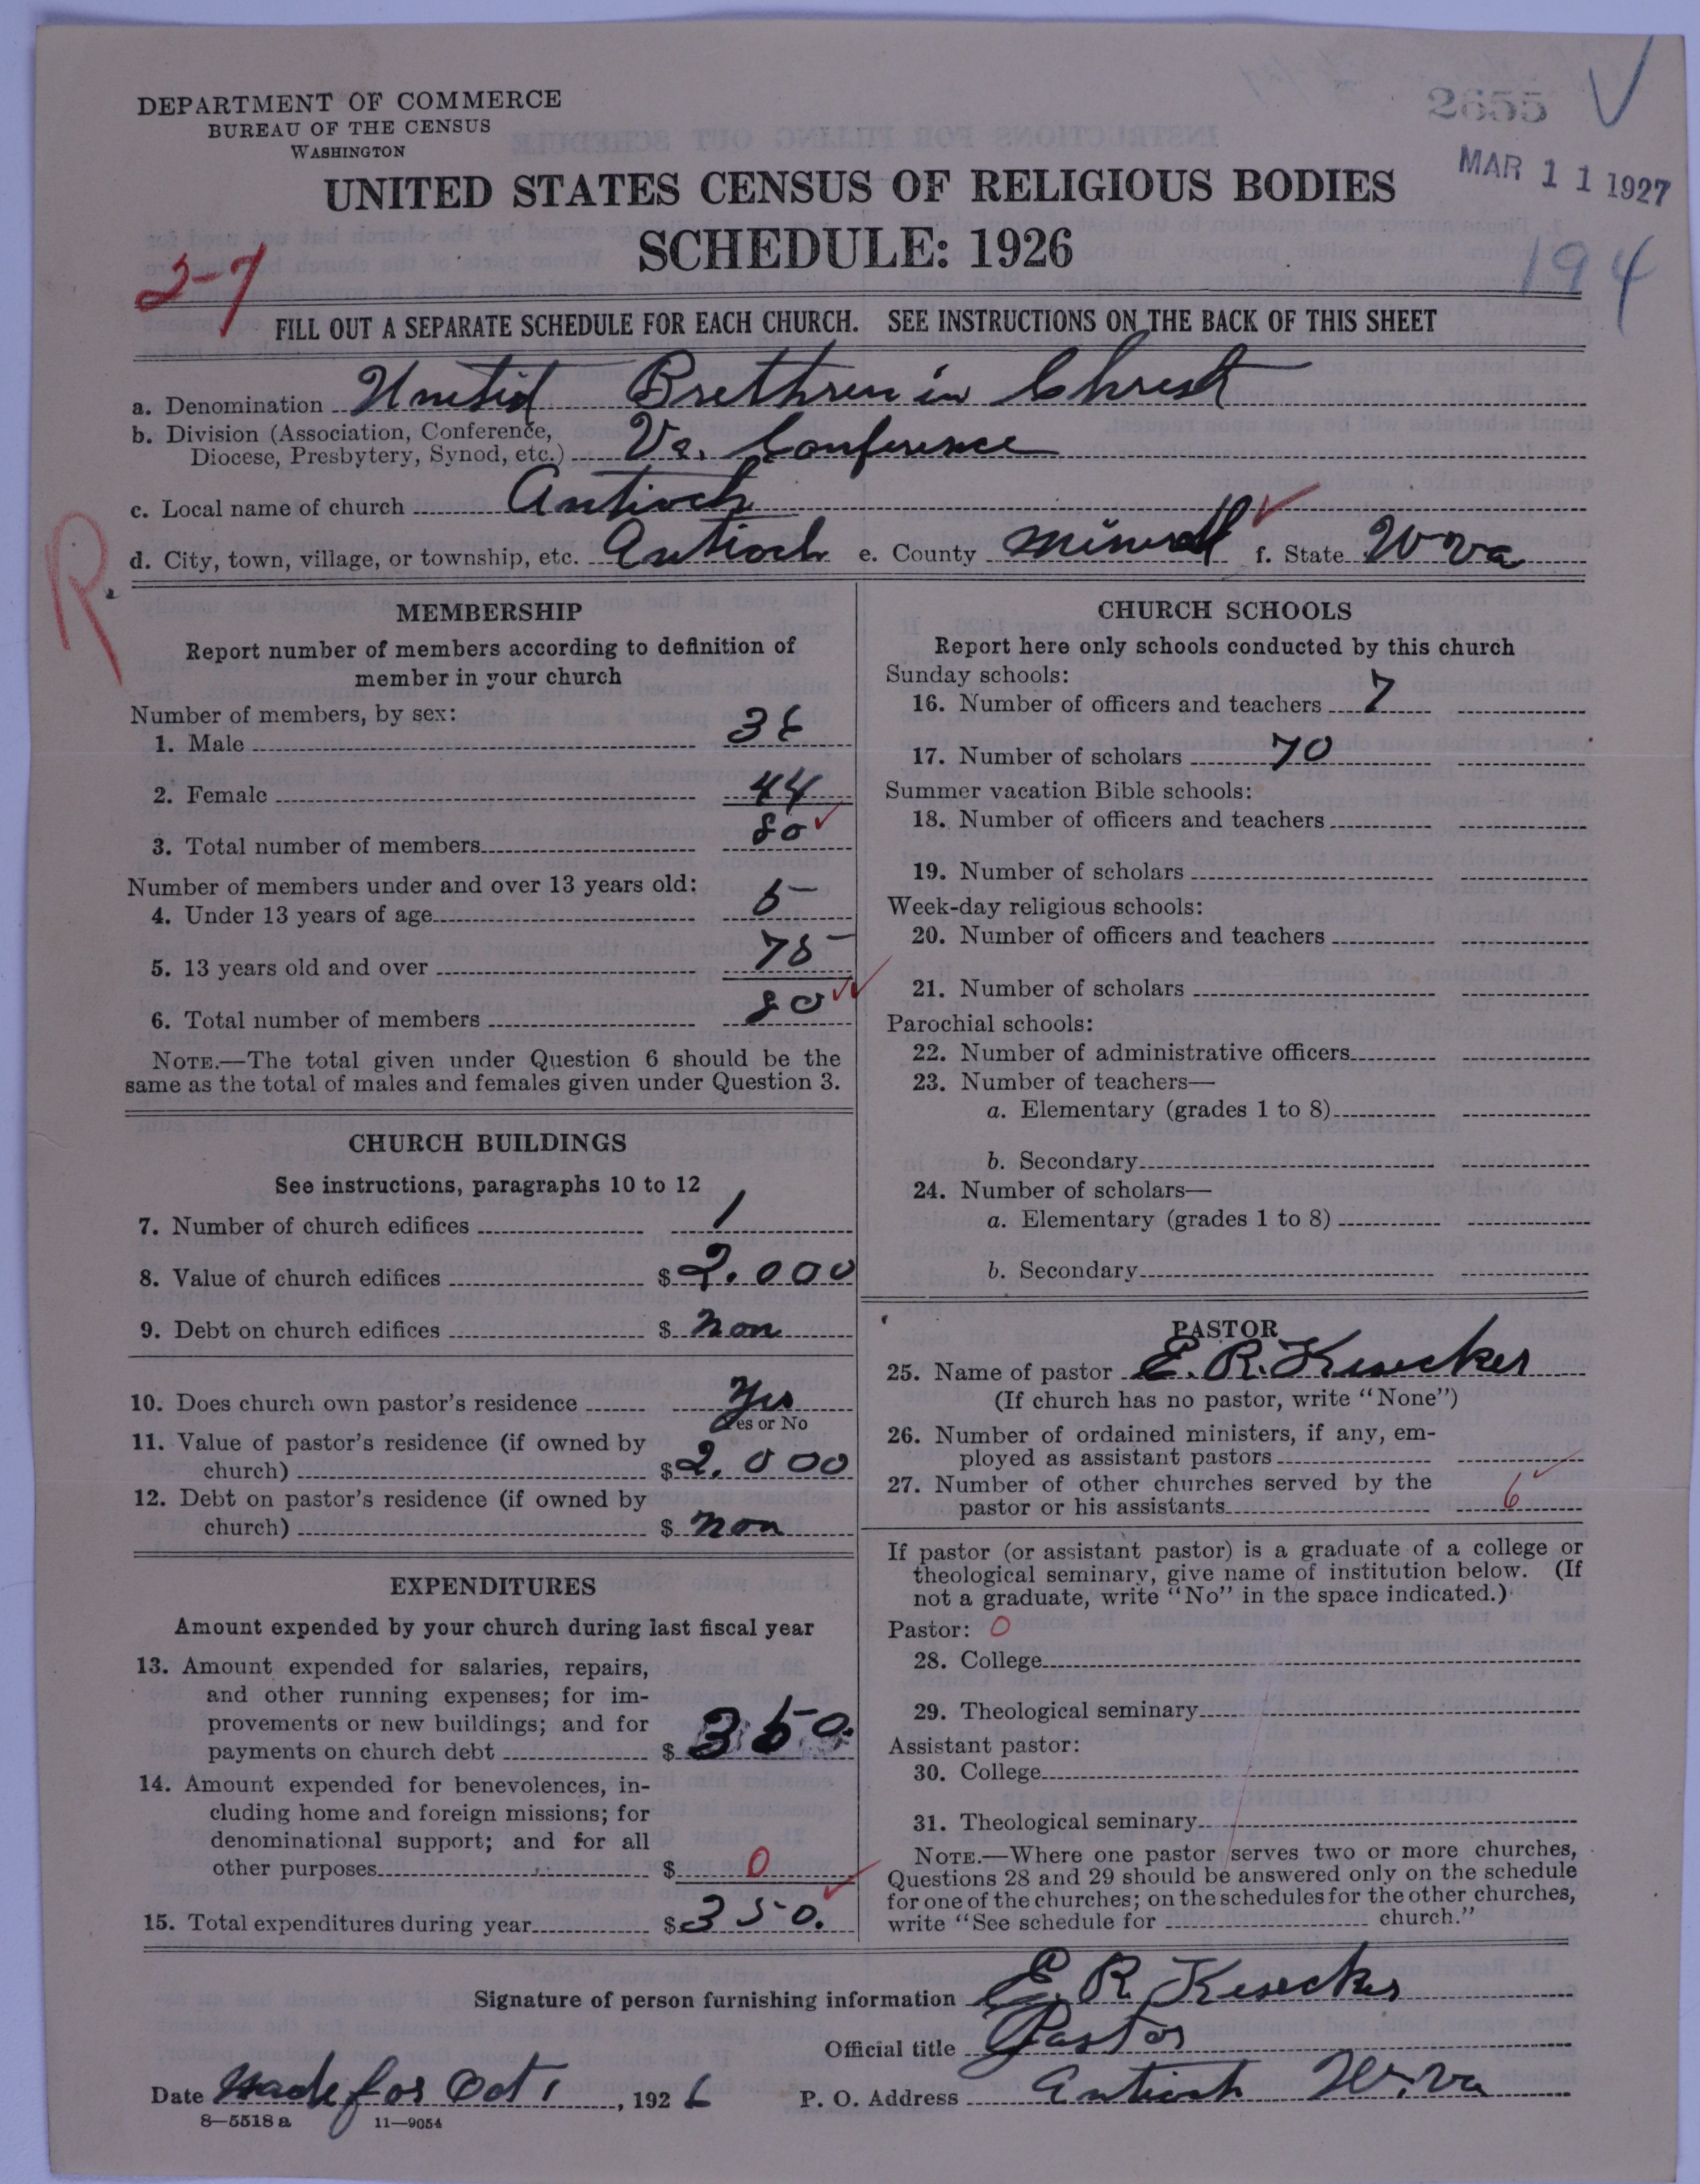 2655
DEPARTMENT OF COMMERCE
BUREAU OF THE CENSUS
WASHINGTON
MAR 11 1927
UNITED STATES CENSUS OF RELIGIOUS BODIES
SCHEDULE: 1926
2-7
194
FILL OUT A SEPARATE SCHEDULE FOR EACH CHURCH. SEE INSTRUCTIONS ON THE BACK OF THIS SHEET
a. Denomination United Brethren in Christ
b. Division (Association, Conference,
Diocese, Presbytery, Synod, etc.) Va. Conference
c. Local name of church Antioch
d. City, town, village, or township, etc. Antioch e. County Mineral f. State W Va
R
MEMBERSHIP
Report number of members according to definition of
member in your church
Number of members, by sex:
1. Male 36
2. Female 44
3. Total number of members 80
Number of members under and over 13 years old:
4. Under 13 years of age 5
5. 13 years old and over 75
6. Total number of members 80
NOTE.—The total given under Question 6 should be the
same as the total of males and females given under Question 3.
CHURCH BUILDINGS
See instructions, paragraphs 10 to 12
7. Number of church edifices 1
8. Value of church edifices $ 2.000
9. Debt on church edifices $ non
10. Does church own pastor's residence Yes
Yes or No
11. Value of pastor's residence (if owned by
church) $ 2.000
12. Debt on pastor's residence (if owned by
church) $ non
EXPENDITURES
Amount expended by your church during last fiscal year
13. Amount expended for salaries, repairs,
and other running expenses; for im-
provements or new buildings; and for
payments on church debt $ 350.
14. Amount expended for benevolences, in-
cluding home and foreign missions; for
denominational support; and for all
other purposes $ 0
15. Total expenditures during year $ 350.
CHURCH SCHOOLS
Report here only schools conducted by this church
Sunday schools:
16. Number of officers and teachers 7
17. Number of scholars 70
Summer vacation Bible schools:
18. Number of officers and teachers
19. Number of scholars
Week-day religious schools:
20. Number of officers and teachers
21. Number of scholars
Parochial schools:
22. Number of administrative officers
23. Number of teachers—
a. Elementary (grades 1 to 8)
b. Secondary
24. Number of scholars—
a. Elementary (grades 1 to 8)
b. Secondary
PASTOR
25. Name of pastor E. R. Kesecker
(If church has no pastor, write "None")
26. Number of ordained ministers, if any, em-
ployed as assistant pastors
27. Number of other churches served by the
pastor or his assistants 6
If pastor (or assistant pastor) is a graduate of a college or
theological seminary, give name of institution below. (If
not a graduate, write "No" in the space indicated.)
Pastor: 0
28. College
29. Theological seminary
Assistant pastor:
30. College
31. Theological seminary
NOTE.—Where one pastor serves two or more churches,
Questions 28 and 29 should be answered only on the schedule
for one of the churches; on the schedules for the other churches,
write "See schedule for church."
Signature of person furnishing information E. R. Kesecker
Official title Pastor
Date Made for Oct 1, 1926 P. O. Address Antioch W. Va
8—5518 a 11—9054